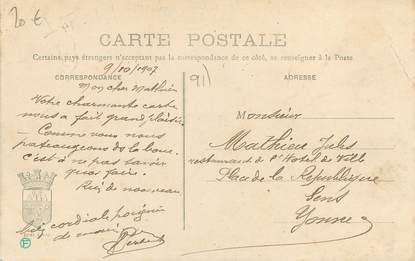 20 €
CARTE POSTALE
Certains pays étrangers n'acceptant pas la correspondance de ce côté, se renseigner à la Poste
9/10/1907
CORRESPONDANCE
91)
ADRESSE
Mon cher Mathieu
Votre charmante carte
nous a fait grand plaisir
Comme vous nous
pataugeons de la boue.
c'est à ne pas savoir
quoi faire.
Rien de nouveau
cordiale poignée
de main
Monsieur
Mathieu Jules
restaurant de l'Hotel de Ville
Place de la République
Sens
Yonne